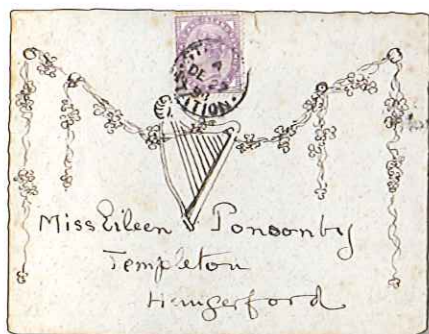 DE
Miss Eileen Ponsonby
Templeton
Hungerford